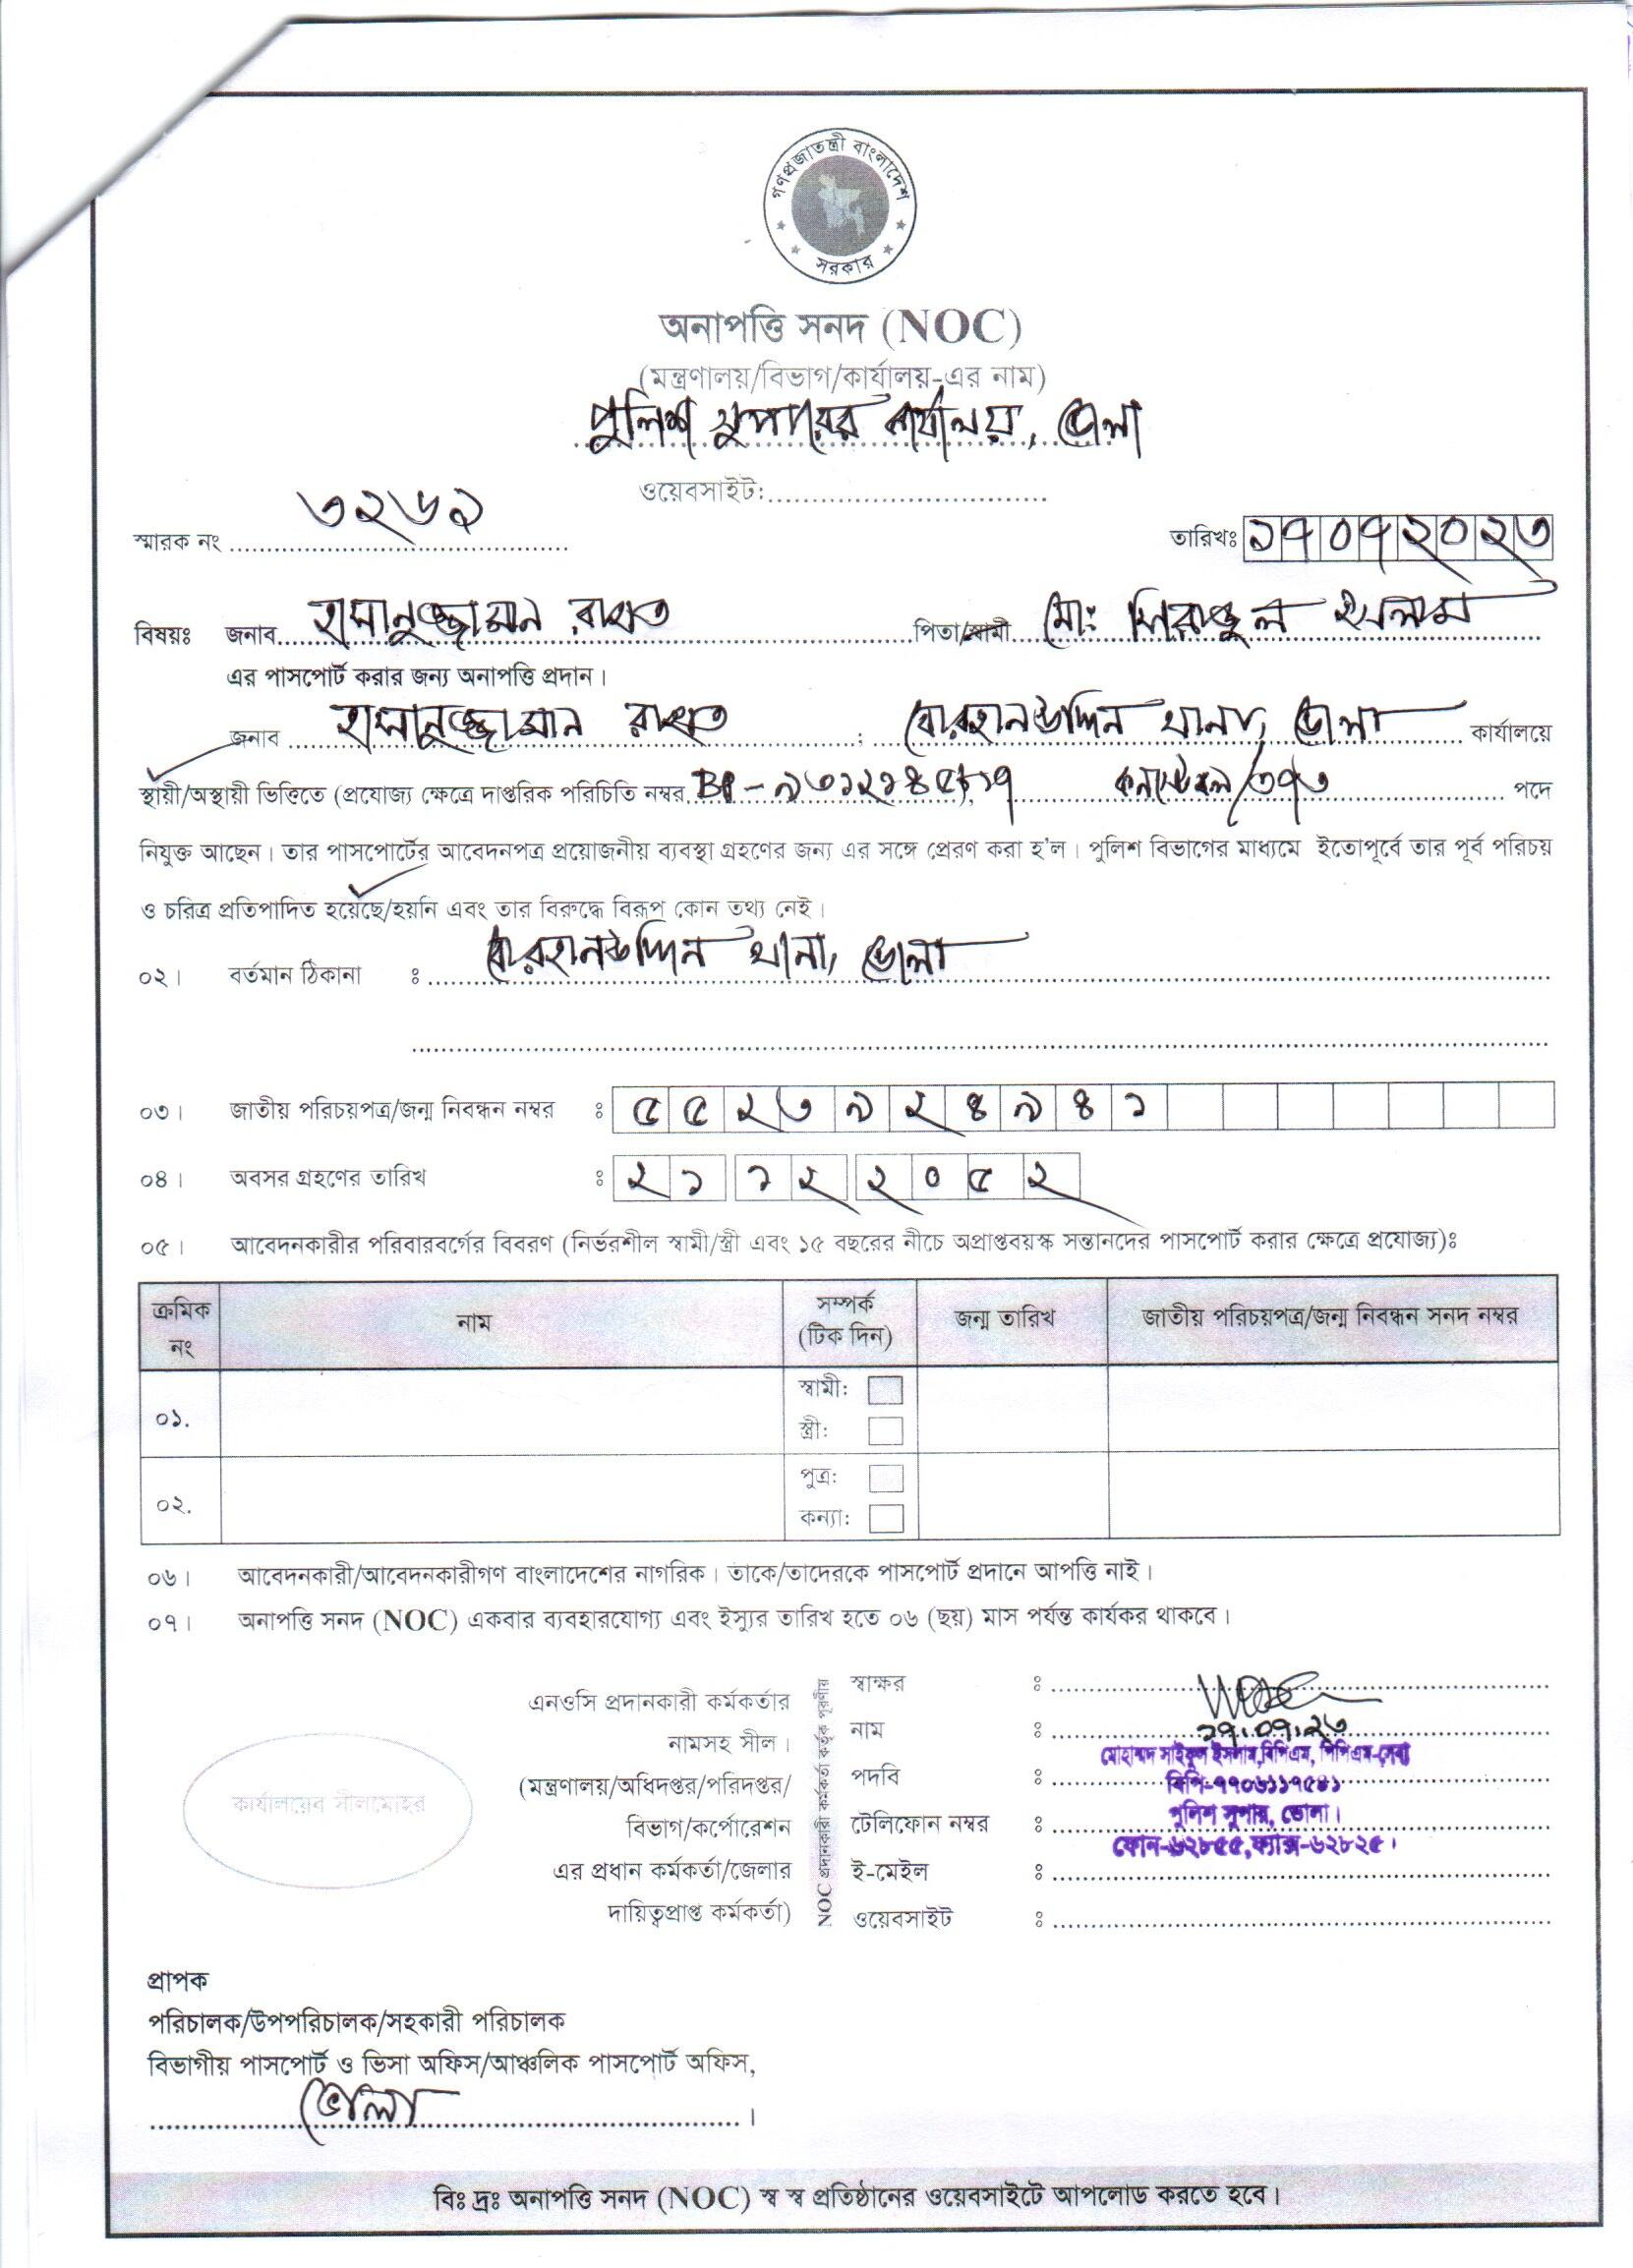 গণপ্রজাতন্ত্রী বাংলাদেশ
সরকার
অনাপত্তি সনদ (NOC)
(মন্ত্রণালয়/বিভাগ/কার্যালয়-এর নাম)
পুলিশ সুপারের কার্যালয়, ভোলা
ওয়েবসাইট:
স্মারক নং ৩২৬২
তারিখঃ ১৭০৭২০২৩
বিষয়ঃ জনাব হাসানুজ্জামান রাহাত পিতা/স্বামী মো: সিরাজুল ইসলাম
এর পাসপোর্ট করার জন্য অনাপত্তি প্রদান।
জনাব হাসানুজ্জামান রাহাত ; বোরহানউদ্দিন থানা, ভোলা কার্যালয়ে
স্থায়ী/অস্থায়ী ভিত্তিতে (প্রযোজ্য ক্ষেত্রে দাপ্তরিক পরিচিতি নম্বর কনস্টেবল/৩৭৩ পদে
নিযুক্ত আছেন। তার পাসপোর্টের আবেদনপত্র প্রয়োজনীয় ব্যবস্থা গ্রহণের জন্য এর সঙ্গে প্রেরণ করা হ'ল। পুলিশ বিভাগের মাধ্যমে ইতোপূর্বে তার পূর্ব পরিচয়
ও চরিত্র প্রতিপাদিত হয়েছে/হয়নি এবং তার বিরুদ্ধে বিরূপ কোন তথ্য নেই।
০২। বর্তমান ঠিকানা ঃ বোরহানউদ্দিন থানা, ভোলা
০৩। জাতীয় পরিচয়পত্র/জন্ম নিবন্ধন নম্বর ঃ ৫৫২৩৯২৪৯৪১
০৪। অবসর গ্রহণের তারিখ ঃ ২১ ১২ ২০৫২
০৫। আবেদনকারীর পরিবারবর্গের বিবরণ (নির্ভরশীল স্বামী/স্ত্রী এবং ১৫ বছরের নীচে অপ্রাপ্তবয়স্ক সন্তানদের পাসপোর্ট করার ক্ষেত্রে প্রযোজ্য)ঃ
ক্রমিক নং নাম সম্পর্ক (টিক দিন) জন্ম তারিখ জাতীয় পরিচয়পত্র/জন্ম নিবন্ধন সনদ নম্বর
০১. স্বামী:
স্ত্রী:
০২. পুত্র:
কন্যা:
০৬। আবেদনকারী/আবেদনকারীগণ বাংলাদেশের নাগরিক। তাকে/তাদেরকে পাসপোর্ট প্রদানে আপত্তি নাই।
০৭। অনাপত্তি সনদ (NOC) একবার ব্যবহারযোগ্য এবং ইস্যুর তারিখ হতে ০৬ (ছয়) মাস পর্যন্ত কার্যকর থাকবে।
কার্যালয়ের সীলমোহর
এনওসি প্রদানকারী কর্মকর্তার
নামসহ সীল।
(মন্ত্রণালয়/অধিদপ্তর/পরিদপ্তর/
বিভাগ/কর্পোরেশন
এর প্রধান কর্মকর্তা/জেলার
দায়িত্বপ্রাপ্ত কর্মকর্তা)
NOC প্রদানকারী কর্মকর্তা কর্তৃক পূরণীয়
স্বাক্ষর ঃ
নাম ঃ ১৭.০৭.২৩
মোহাম্মদ সাইফুল ইসলাম,বিপিএম, পিপিএম-সেবা
পদবি ঃ বিপি-৭৭০৬১১৭৫৪১
টেলিফোন নম্বর ঃ পুলিশ সুপার, ভোলা।
ফোন-৬২৮৫৫,ফ্যাক্স-৬২৮২৫।
ই-মেইল ঃ
ওয়েবসাইট ঃ
প্রাপক
পরিচালক/উপপরিচালক/সহকারী পরিচালক
বিভাগীয় পাসপোর্ট ও ভিসা অফিস/আঞ্চলিক পাসপোর্ট অফিস,
ভোলা।
বিঃ দ্রঃ অনাপত্তি সনদ (NOC) স্ব স্ব প্রতিষ্ঠানের ওয়েবসাইটে আপলোড করতে হবে।